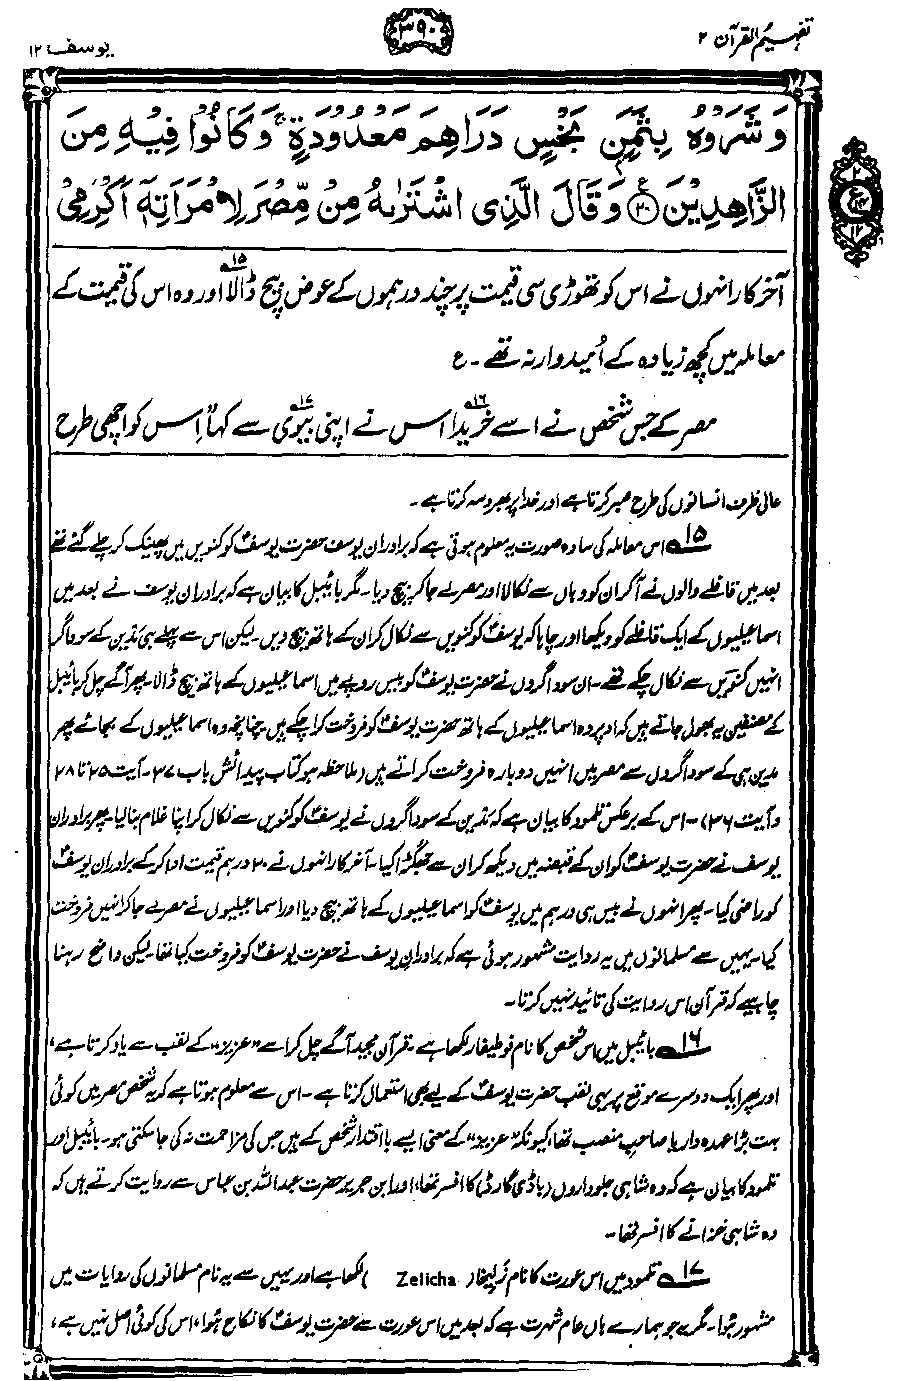 تفہیم القرآن ۲
۳۹۰
یوسف ۱۲
وَشَرَوْهُ بِثَمَنٍۭ بَخْسٍ دَرَاهِمَ مَعْدُوْدَةٍ ۚ وَكَانُوْا فِيْهِ مِنَ
الزَّاهِدِيْنَ ﴿۲۰﴾ وَقَالَ الَّذِى اشْتَرٰىهُ مِنْ مِّصْرَ لِامْرَاَتِهٖٓ اَكْرِمِىْ
آخر کار انہوں نے اس کو تھوڑی سی قیمت پر چند درہموں کے عوض بیچ ڈالا۱۵ اور وہ اس کی قیمت کے
معاملہ میں کچھ زیادہ کے اُمیدوار نہ تھے۔ ع
مصر کے جس شخص نے اسے خریدا۱۶ اس نے اپنی بیوی۱۷ سے کہا”اِس کو اچھی طرح
عالی ظرف انسانوں کی طرح صبر کرتا ہے اور خدا پر بھروسہ کرتا ہے۔
۱۵ اس معاملہ کی سادہ صورت یہ معلوم ہوتی ہے کہ برادرانِ یوسف حضرت یوسفؑ کو کنویں میں پھینک کر چلے گئے تھے
بعد میں قافلے والوں نے آکر ان کو وہاں سے نکالا اور مصر لے جاکر بیچ دیا۔ مگر بائیبل کا بیان ہے کہ برادران یوسف نے بعد میں
اسماعیلیوں کے ایک قافلے کو دیکھا اور چاہا کہ یوسفؑ کو کنویں سے نکال کر ان کے ہاتھ بیچ دیں۔ لیکن اس سے پہلے ہی مَدْیَن کے سوداگر
انہیں کنویں سے نکال چکے تھے۔ ان سوداگروں نے حضرت یوسفؑ کو بیس روپے میں اسماعیلیوں کے ہاتھ بیچ ڈالا۔ پھر آگے چل کر بائیبل
کے مصنفین یہ بھول جاتے ہیں کہ اوپر وہ اسماعیلیوں کے ہاتھ حضرت یوسفؑ کو فروخت کرا چکے ہیں۔ چنانچہ وہ اسماعیلیوں کے بجائے پھر
مدین ہی کے سوداگروں سے مصر میں انہیں دوبارہ فروخت کراتے ہیں (ملاحظہ ہو کتاب پیدائش باب ۳۷۔ آیت ۲۵ تا ۲۸
و آیت ۳۶)۔ اس کے برعکس تلمود کا بیان ہے کہ مَدْیَن کے سوداگروں نے یوسفؑ کو کنویں سے نکال کر اپنا غلام بنالیا۔ پھر برادران
یوسف نے حضرت یوسفؑ کو ان کے قبضہ میں دیکھ کر ان سے جھگڑا کیا۔ آخر کار انہوں نے ۲۰ درہم قیمت ادا کر کے برادران یوسفؑ
کو راضی کیا۔ پھر انہوں نے بیس ہی درہم میں یوسفؑ کو اسماعیلیوں کے ہاتھ بیچ دیا اور اسماعیلیوں نے مصر لے جاکر انہیں فروخت
کیا۔ یہیں سے مسلمانوں میں یہ روایت مشہور ہوئی ہے کہ برادرانِ یوسف نے حضرت یوسفؑ کو فروخت کیا تھا۔ لیکن واضح رہنا
چاہیے کہ قرآن اس روایت کی تائید نہیں کرتا۔
۱۶ بائیبل میں اس شخص کا نام فوطیفار لکھا ہے۔ قرآن مجید آگے چل کر اسے ”عزیز“ کے لقب سے یاد کرتا ہے،
اور پھر ایک دوسرے موقع پر یہی لقب حضرت یوسفؑ کے لیے بھی استعمال کرتا ہے۔ اس سے معلوم ہوتا ہے کہ یہ شخص مصر میں کوئی
بہت بڑا عہدہ دار یا صاحبِ منصب تھا، کیونکہ ”عزیز“ کے معنی ایسے بااقتدار شخص کے ہیں جس کی مزاحمت نہ کی جا سکتی ہو۔ بائیبل اور
تلمود کا بیان ہے کہ وہ شاہی جلوداروں (باڈی گارڈ) کا افسر تھا، اور ابن جریر حضرت عبداللہ بن عباس سے روایت کرتے ہیں کہ
وہ شاہی خزانے کا افسر تھا۔
۱۷ تلمود میں اس عورت کا نام زَلِیخَا (Zelicha) لکھا ہے اور یہیں سے یہ نام مسلمانوں کی روایات میں
مشہور ہُوا۔ مگر یہ جو ہمارے ہاں عام شہرت ہے کہ بعد میں اس عورت سے حضرت یوسفؑ کا نکاح ہُوا، اس کی کوئی اصل نہیں ہے،